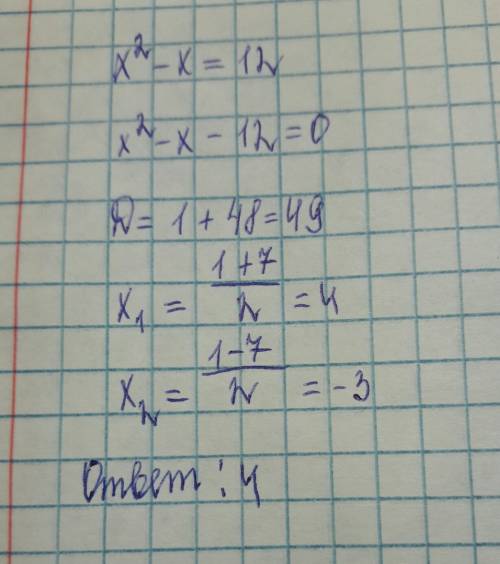 x² - x = 12
x² - x - 12 = 0
D = 1 + 48 = 49
x₁ = (1+7)/2 = 4
x₂ = (1-7)/2 = -3
Ответ: 4